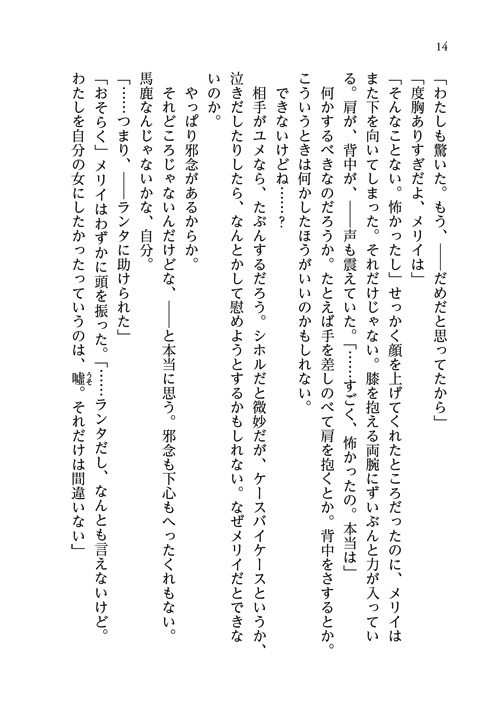 14
「わたしも驚いた。もう、――だめだと思ってたから」
「度胸ありすぎだよ、メリイは」
「そんなことない。怖かったし」せっかく顔を上げてくれたところだったのに、メリイは
また下を向いてしまった。それだけじゃない。膝を抱える両腕にずいぶんと力が入ってい
る。肩が、背中が、――声も震えていた。「……すごく、怖かったの。本当は」
何かするべきなのだろうか。たとえば手を差しのべて肩を抱くとか。背中をさするとか。
こういうときは何かしたほうがいいのかもしれない。
できないけどね……？
相手がユメなら、たぶんするだろう。シホルだと微妙だが、ケースバイケースというか、
泣きだしたりしたら、なんとかして慰めようとするかもしれない。なぜメリイだとできな
いのか。
やっぱり邪念があるからか。
それどころじゃないんだけどな、――と本当に思う。邪念も下心もへったくれもない。
馬鹿なんじゃないかな、自分。
「……つまり、――ランタに助けられた」
「おそらく」メリイはわずかに頭を振った。「……ランタだし、なんとも言えないけど。
わたしを自分の女にしたかったっていうのは、嘘うそ。それだけは間違いない」